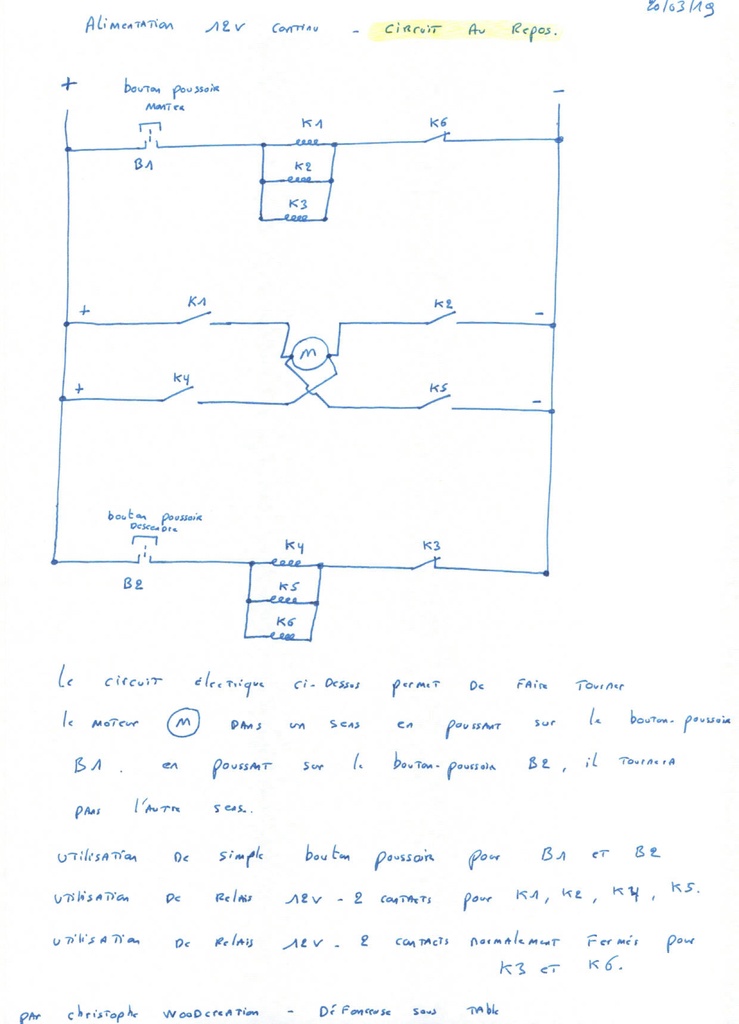 20/03/19
Alimentation 12V continu - circuit Au Repos.
+
-
bouton poussoir
Monter
B1
K1
K6
K2
K3
+
K1
K2
-
M
+
K4
K5
-
bouton poussoir
Descendre
B2
K4
K3
K5
K6
Le circuit électrique ci-Dessus permet De Faire Tourner
le moteur M Dans un sens en poussant sur le bouton-poussoir
B1. en poussant sur le bouton-poussoir B2, il Tournera
Dans l'autre sens.
Utilisation De simple bouton poussoir pour B1 et B2
Utilisation De Relais 12V - 2 contacts pour K1, K2, K4, K5.
Utilisation De Relais 12V - 2 contacts normalement Fermés pour
K3 et K6.
par christophe Woodcreation - Défonceuse sous Table